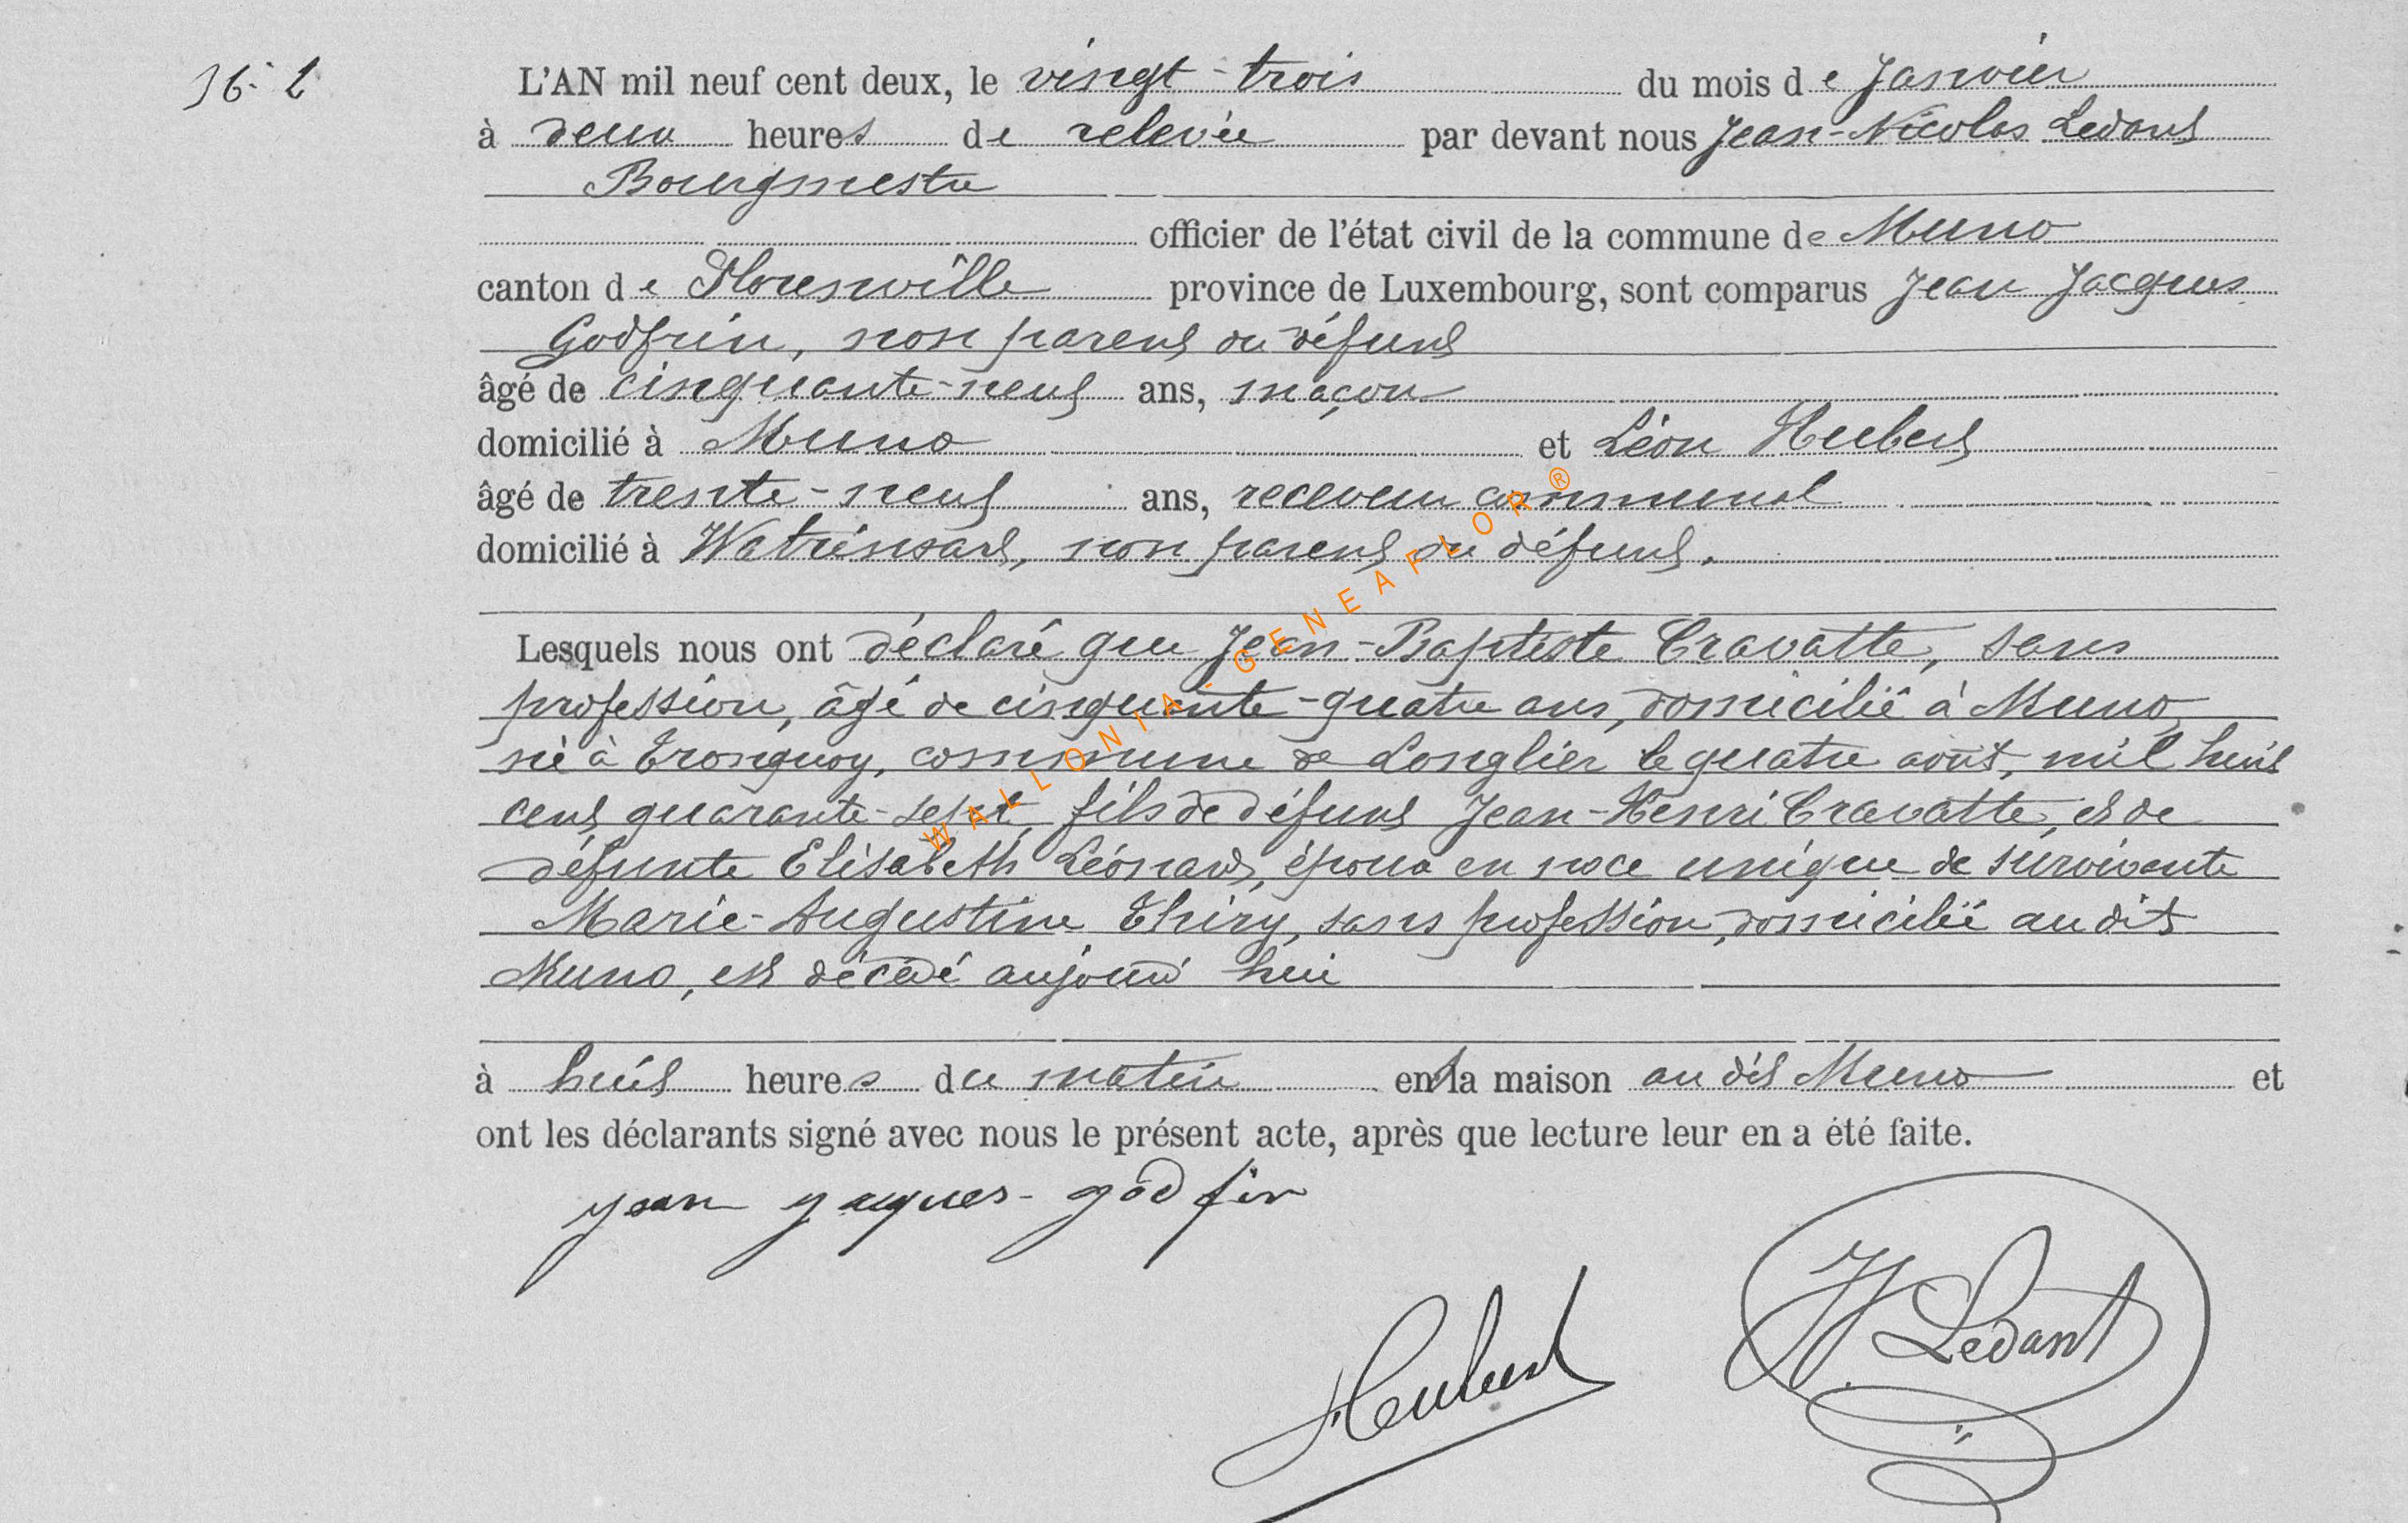 36 - 2
L'AN mil neuf cent deux, le vingt-trois du mois de Janvier
à deux heures de relevée par devant nous Jean-Nicolas Ledant
Bourgmestre
officier de l'état civil de la commune de Muno
canton de Florenville province de Luxembourg, sont comparus Jean Jacques
Godfrin, non parent du défunt
âgé de cinquante-neuf ans, maçon
domicilié à Muno et Léon Hubert
âgé de trente-neuf ans, receveur communal
domicilié à Watrinsart, non parent du défunt.
Lesquels nous ont déclaré que Jean-Baptiste Cravatte, sans
profession, âgé de cinquante-quatre ans, domicilié à Muno,
né à Tronquoy, commune de Longlier le quatre août, mil huit
cent quarante-sept, fils de défunt Jean-Henri Cravatte, et de
défunte Elisabeth Léonard, époux en noce unique de survivante
Marie-Augustine Thiry, sans profession, domicilié au dit
Muno, est décédé aujourd'hui
à huit heures du matin en la maison au dit Muno et
ont les déclarants signé avec nous le présent acte, après que lecture leur en a été faite.
jean jaques - godfrin
Hubert
JN Ledant
WALLONIA - GENEAFLOR ®